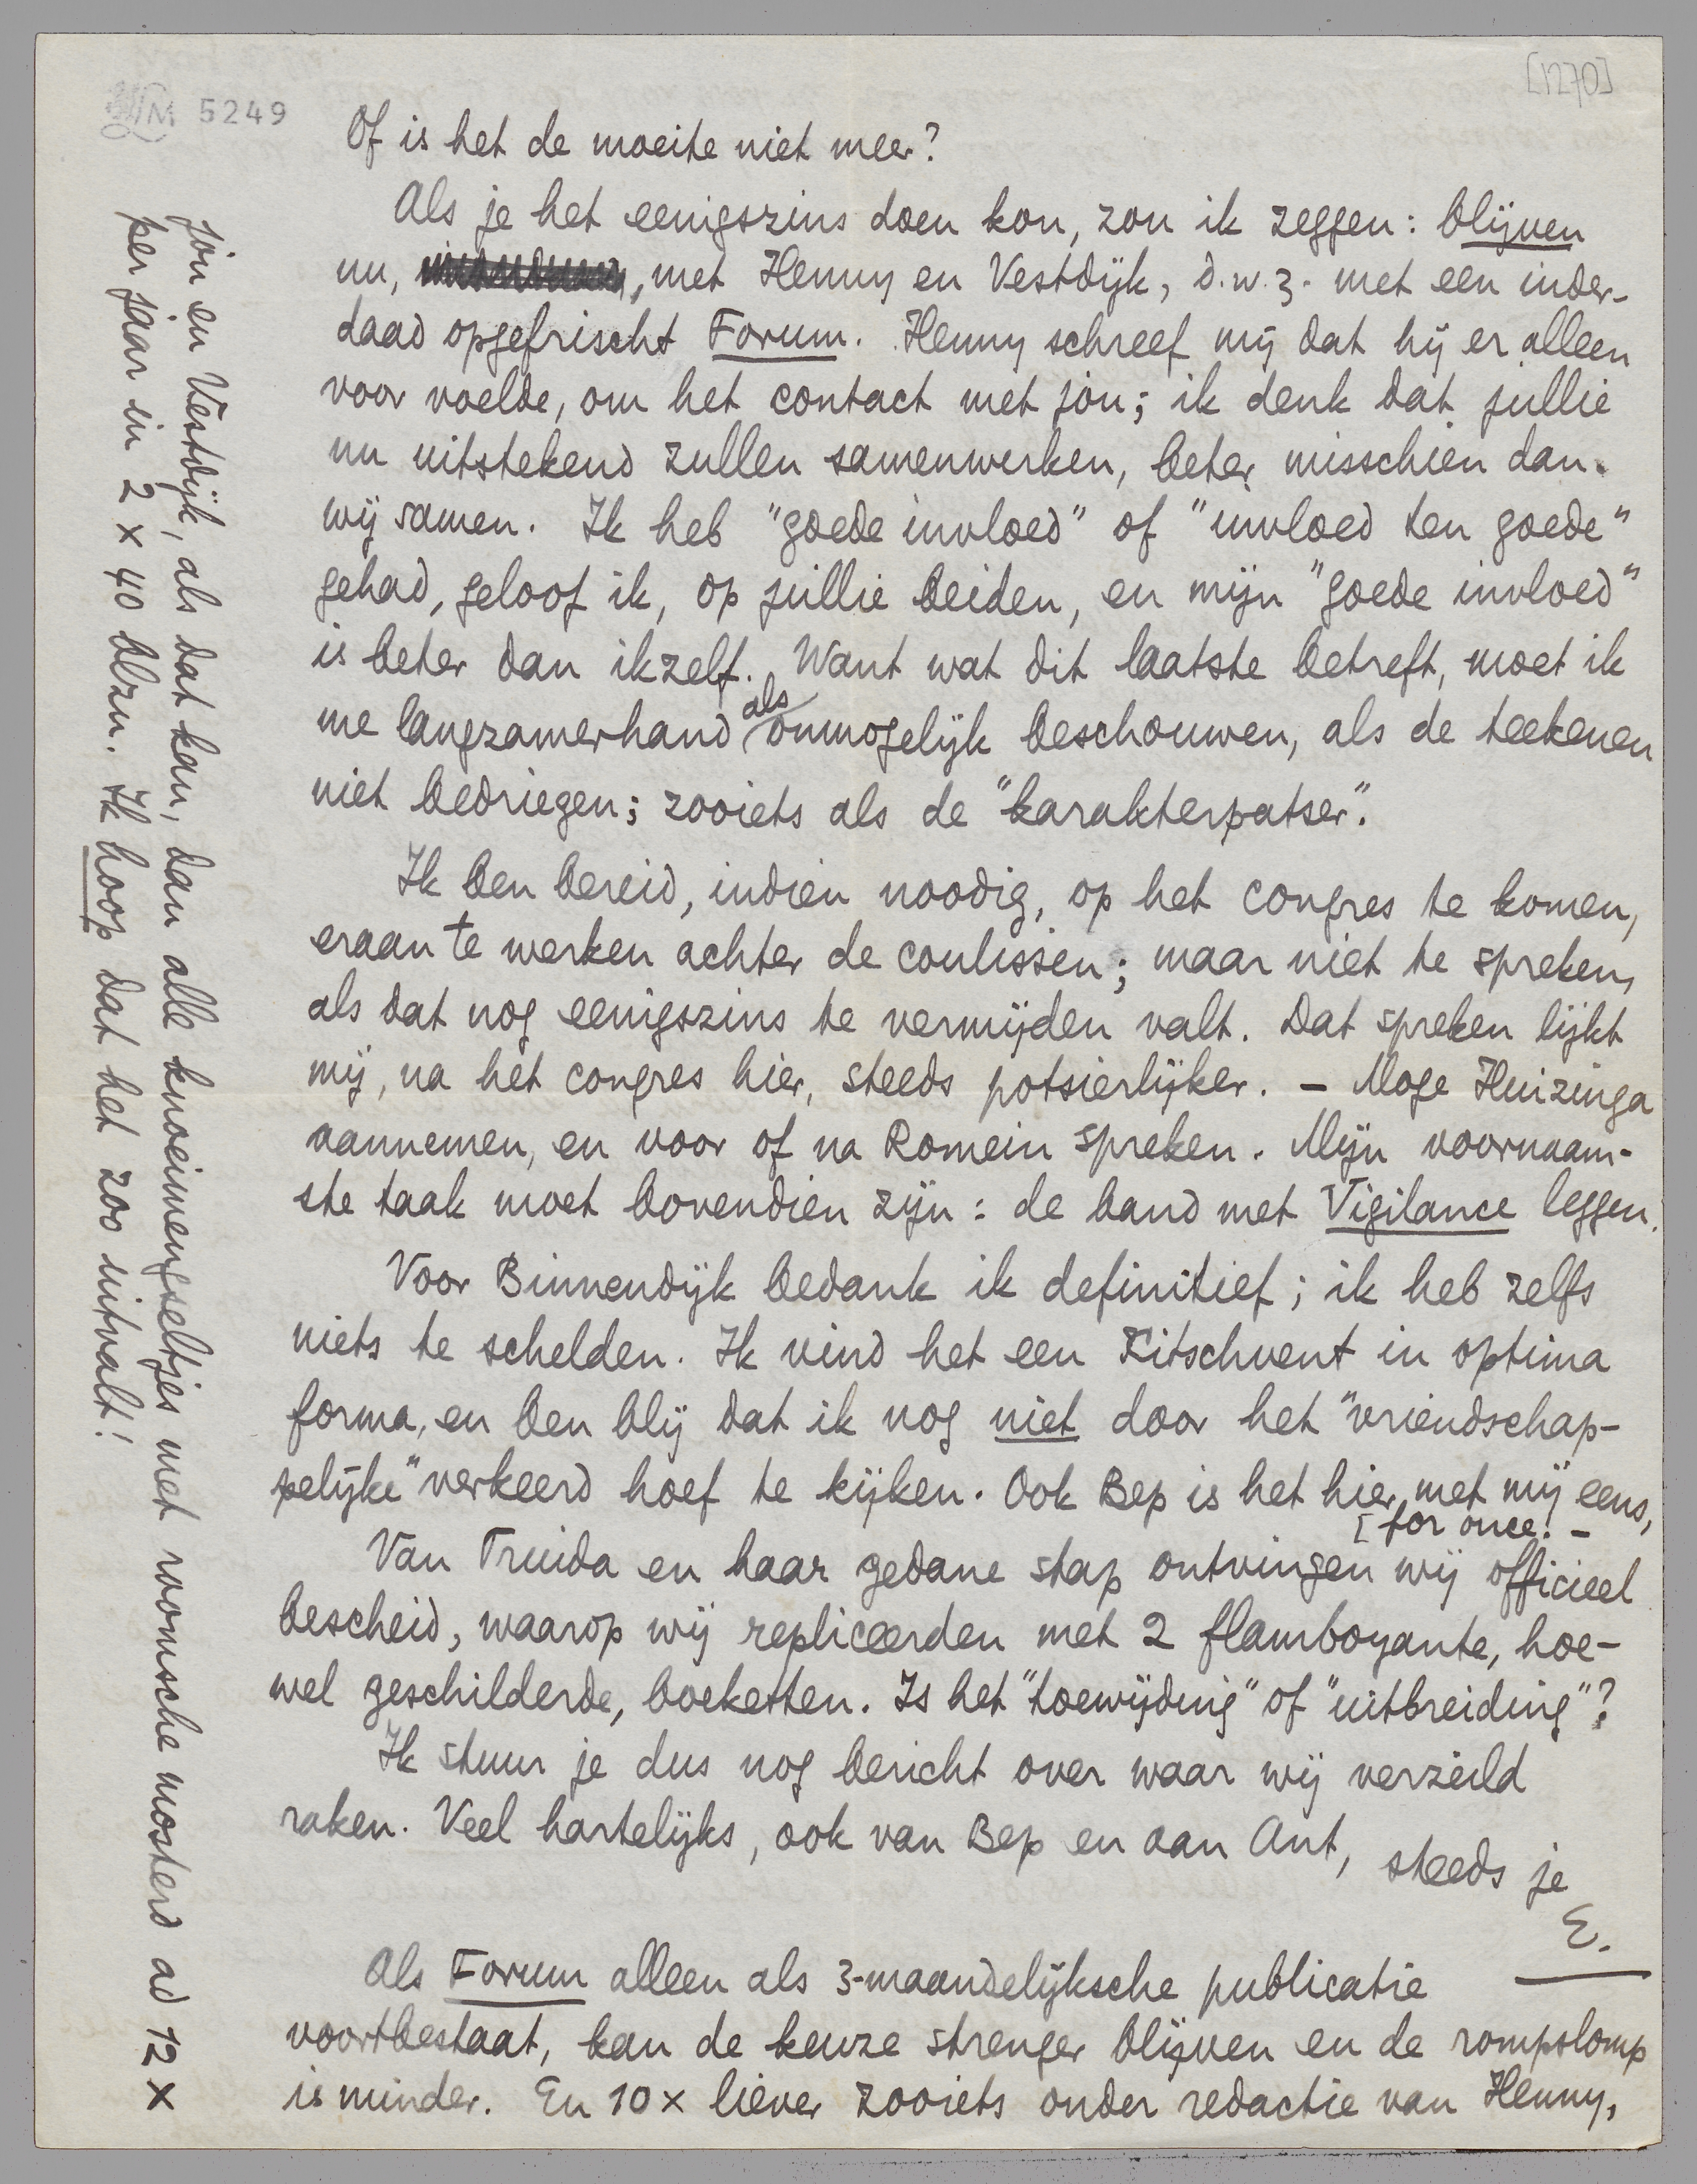 [1270]
LM 5249
Of is het de moeite niet meer?
Als je het eenigszins doen kon, zou ik zeggen: blijven
nu, met Henny en Vestdijk, d.w.z. met een inder-
daad opgefrischt Forum. Henny schreef mij dat hij er alleen
voor voelde, om het contact met jou; ik denk dat jullie
nu uitstekend zullen samenwerken, beter misschien dan
wij samen. Ik heb "goede invloed" of "invloed ten goede"
gehad, geloof ik, op jullie beiden, en mijn "goede invloed"
is beter dan ikzelf. Want wat dit laatste betreft, moet ik
me langzamerhand als onmogelijk beschouwen, als de teekenen
niet bedriegen; zooiets als de "karakterpatser".
Ik ben bereid, indien noodig, op het congres te komen,
eraan te werken achter de coulissen; maar niet te spreken,
als dat nog eenigszins te vermijden valt. Dat spreken lijkt
mij, na het congres hier, steeds potsierlijker. – Moge Huizinga
aannemen, en voor of na Romein spreken. Mijn voornaam-
ste taak moet bovendien zijn: de band met Vigilance leggen.
Voor Binnendijk bedank ik definitief; ik heb zelfs
niets te schelden. Ik vind het een Kitschvent in optima
forma, en ben blij dat ik nog niet door het "vriendschap-
pelijke" verkeerd hoef te kijken. Ook Bep is het hier met mij eens,
[for once! –
Van Truida en haar gedane stap ontvingen wij officieel
bescheid, waarop wij repliceerden met 2 flamboyante, hoe-
wel geschilderde, boeketten. Is het "toewijding" of "uitbreiding"?
Ik stuur je dus nog bericht over waar wij verzeild
raken. Veel hartelijks, ook van Bep en aan Ant, steeds je
E.
Als Forum alleen als 3-maandelijksche publicatie
voortbestaat, kan de keuze strenger blijven en de rompslomp
is minder. En 10 x liever zooiets onder redactie van Henny,
jou en Vestdijk, als dat kan, dan alle knoeimengseltjes met roomsche mosterd ad 12 x
per jaar in 2 x 40 blzn. Ik hoop dat het zoo uitvalt!